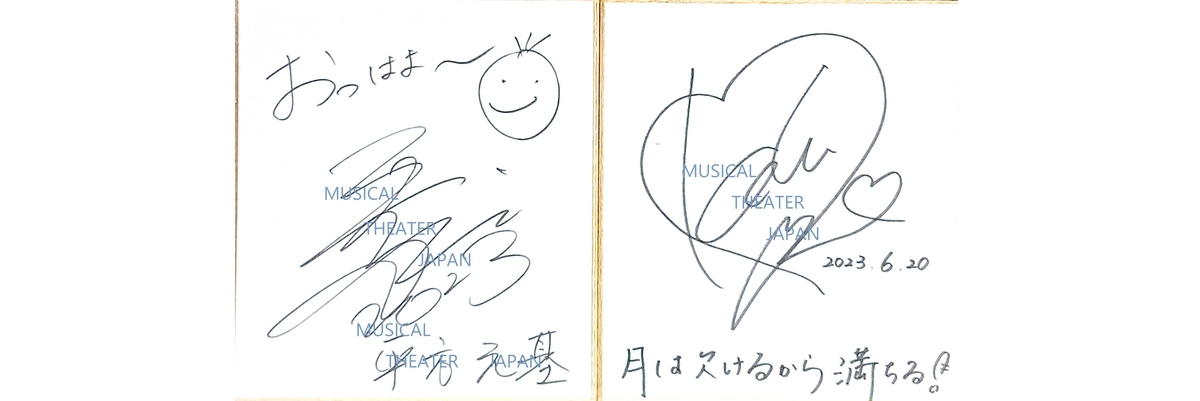 おっはよ〜
MUSICAL
THEATER
JAPAN
2023
MUSICAL
THEATER JAPAN
平方元基
MUSICAL
THEATER
JAPAN
2023.6.20
月は欠けるから満ちる!